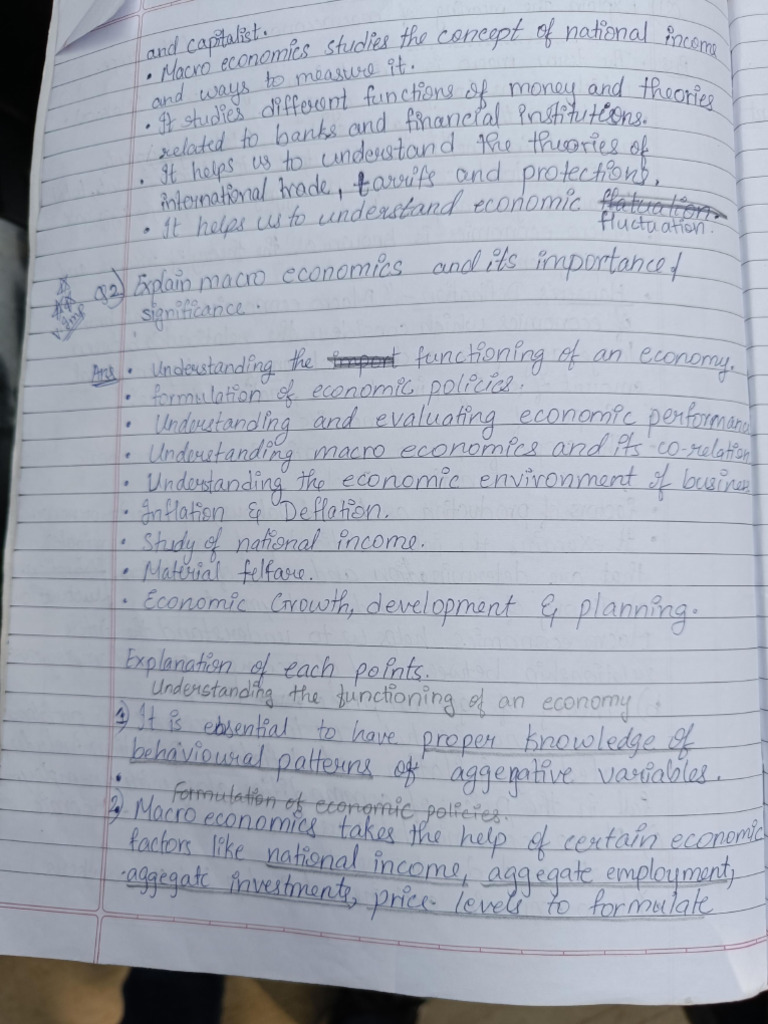 and capitalist.
• Macro economics studies the concept of national income
and ways to measure it.
• It studies different functions of money and theories
related to banks and financial institutions.
• It helps us to understand the theories of
international trade, tarrifs and protections.
• It helps us to understand economic flatuation.
fluctuation.
V. Imp Q2) Explain macro economics and its importance/
significance.
Ans • Understanding the import functioning of an economy.
• formulation of economic policies.
• Understanding and evaluating economic performanc
• Understanding macro economics and its co-relation
• Understanding the economic environment of business
• Inflation & Deflation.
• Study of national income.
• Material felfare.
• Economic Growth, development & planning.
Explanation of each points.
Understanding the functioning of an economy
1) It is essential to have proper knowledge of
behavioural patterns of aggegative variables.
•
formulation of economic policies.
2) Macro economics takes the help of certain economic
factors like national income, aggegate employment,
aggegate investments, price levels to formulate